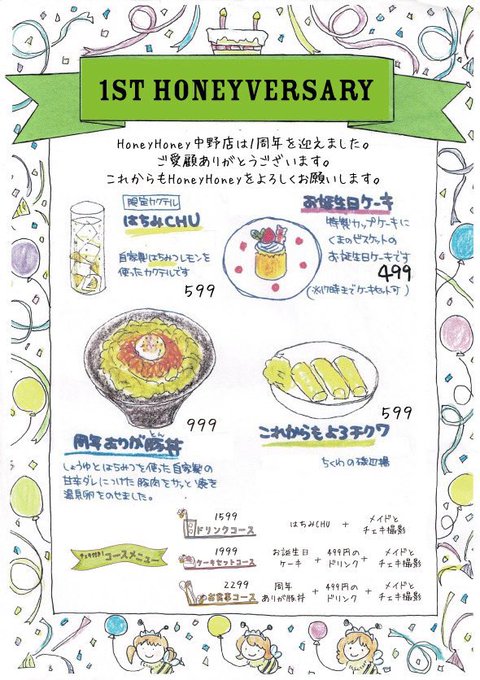 1ST HONEYVERSARY
HoneyHoney中野店は1周年を迎えました。
ご愛顧ありがとうございます。
これからもHoneyHoneyをよろしくお願いします。
限定カクテル
はちみCHU
自家製はちみつレモンを
使ったカクテルです
599
お誕生日ケーキ
特製カップケーキに
くまのビスケットの
お誕生日ケーキです
499
(水17時までケーキセット可)
999
周年ありが豚丼
とん
しょうゆとはちみつを使った自家製の
甘辛ダレにつけた豚肉をサッと焼き
温見卵をのせました。
599
これからもよろチクワ
ちくわの磯辺揚
チェキ付き!
コースメニュー
1599
ドリンクコース
はちみCHU + メイドと
チェキ撮影
1999
ケーキセットコース
お誕生日
ケーキ + 499円の
ドリンク + メイドと
チェキ撮影
2299
お食事コース
周年
ありが豚丼 + 499円の
ドリンク + メイドと
チェキ撮影